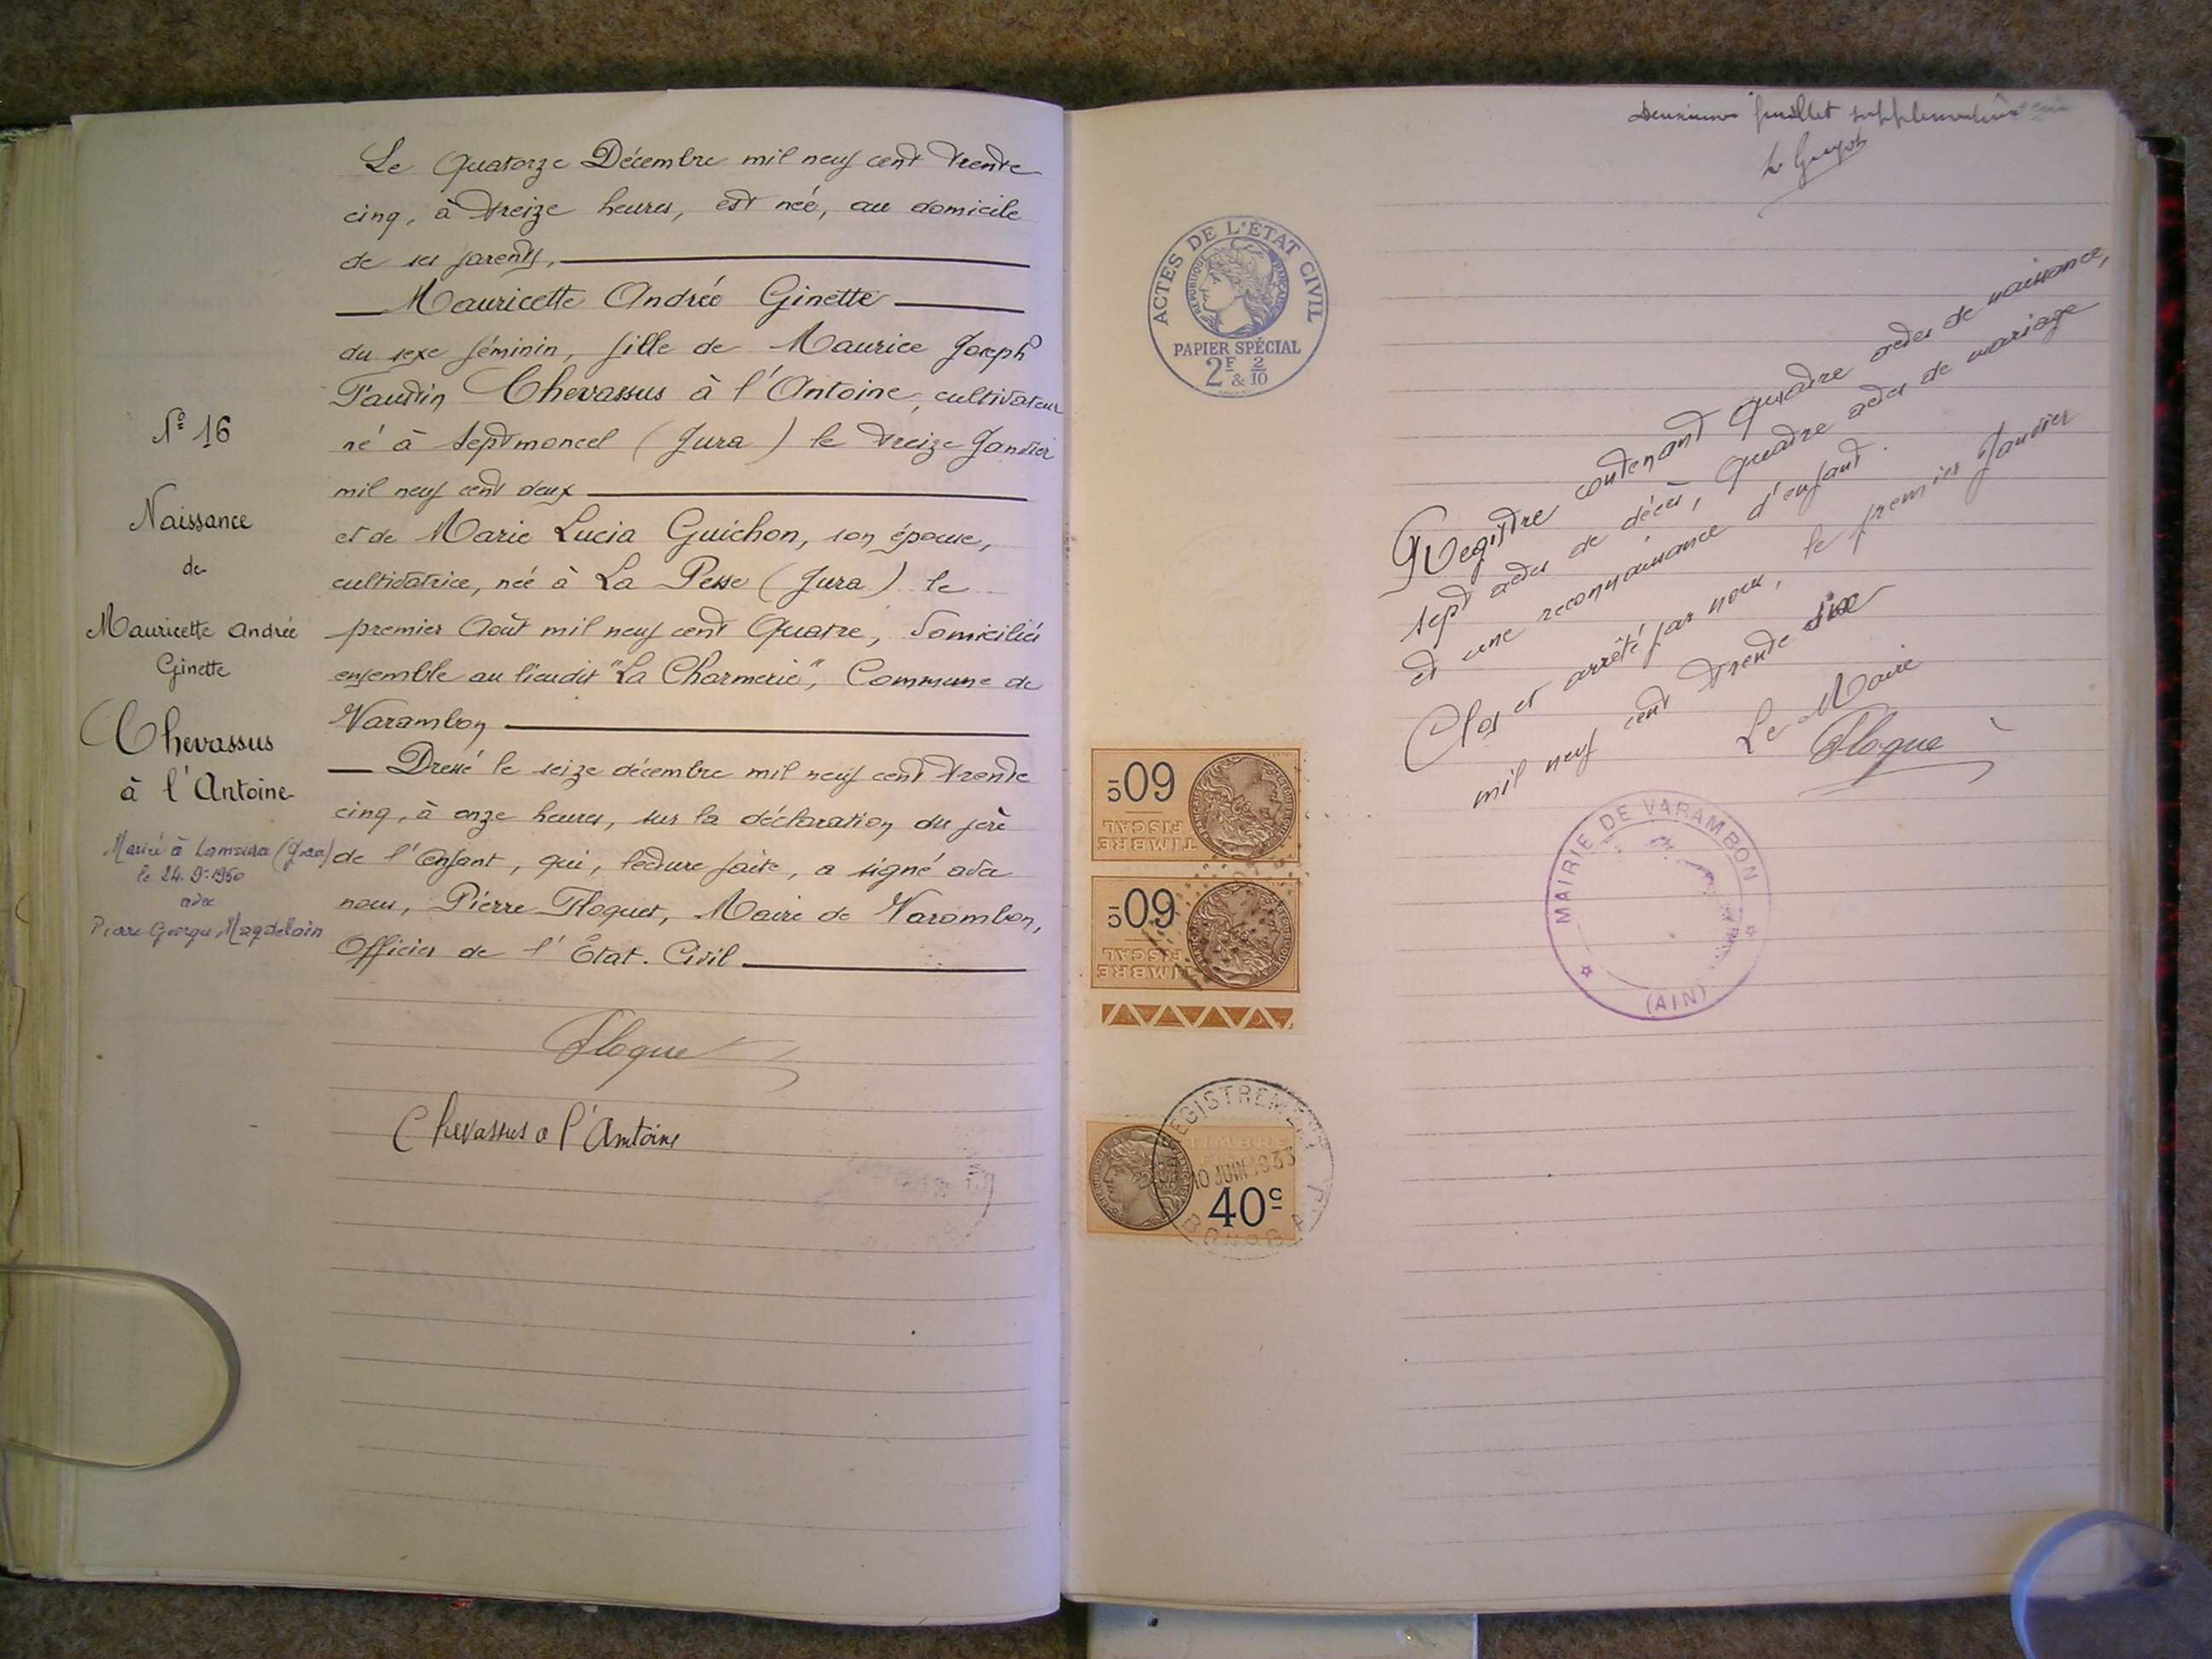 Le Quatorze Décembre mil neuf cent trente
cinq, à treize heures, est née, au domicile
de ses parents,
Mauricette Andrée Ginette
du sexe féminin, fille de Maurice Joseph
Chevassus à l'Antoine, cultivateur
né à Septmoncel (Jura) le treize Janvier
mil neuf cent deux
et de Marie Lucia Guichon, son épouse,
cultivatrice, née à La Pesse (Jura) le
premier Août mil neuf cent Quatre, domiciliés
ensemble au lieudit "La Charmerie", Commune de
Varambon
Dressé le seize décembre mil neuf cent trente
cinq, à onze heures, sur la déclaration du père
de l'enfant, qui, lecture faite, a signé avec
nous, Pierre Floquet, Maire de Varambon,
Officier de l'Etat. Civil
Chevassus a l'Antoine
N° 16
Naissance
de
Mauricette Andrée
Ginette
Chevassus
à l'Antoine
Mariée à Lamoura (Jura)
le 24. 9. 1960
avec
Pierre Georges Magdelain
feuillet supplémentaire
ACTES DE L'ÉTAT CIVIL
RÉPUBLIQUE FRANÇAISE
PAPIER SPÉCIAL
2F & 2/10
Registre contenant Quatre actes de naissance,
sept actes de décès, Quatre actes de mariage
et une reconnaissance d'enfant.
Clos et arrêté par nous, le premier Janvier
mil neuf cent trente six
Le Maire
MAIRIE DE VARAMBON
(AIN)
60c
TIMBRE
FISCAL
60c
TIMBRE
FISCAL
ENREGISTREMENT
TIMBRE
10 JUIN 1933
40c
BOURG